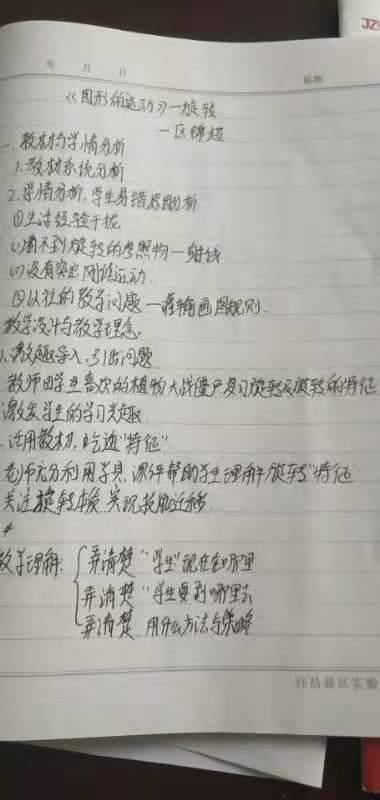 年 月 日
《图形的运动》一旋转
一区锦超
一、教材与学情分析
1.教材系统分析
2.学情分析,学生易错原因分析
①生活经验干扰
(1)看不到旋转的参照物一射线
(2)没有突出随从运动
②以往的教学问题一灌输画图规则.
教学设计与教学理念.
1.激趣导入,引出问题
教师由学生喜欢的植物大战僵尸复习旋转及旋转的特征
激发学生的学习兴趣.
活用教材,吃透"特征"
老师充分利用学具,课件帮助学生理解"旋转"特征
关注旋转本质 实现技能迁移.
教学理解:
弄清楚"学生"现在在哪里
弄清楚"学生要到哪里去
弄清楚 用什么方法与策略
许昌新区实验
JZ